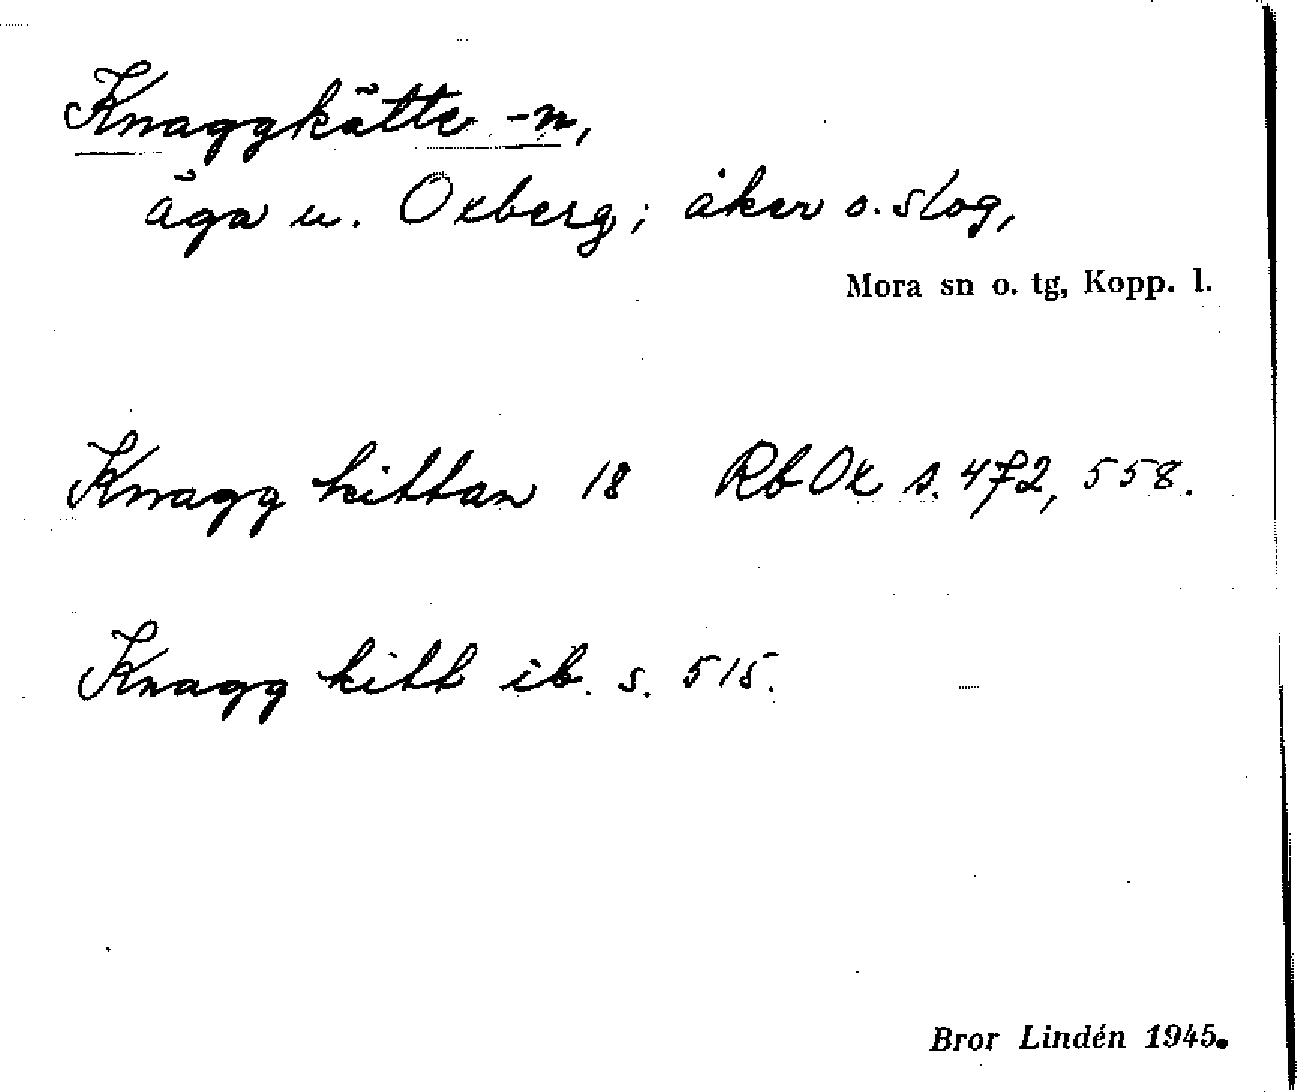 Knaggkätte -n,
äga u. Oxberg; åker o. slog,
Mora sn o. tg, Kopp. l.
Knagg kittan 18 RbOx s. 472, 558.
Knagg kitt ib. s. 515.
Bror Lindén 1945.